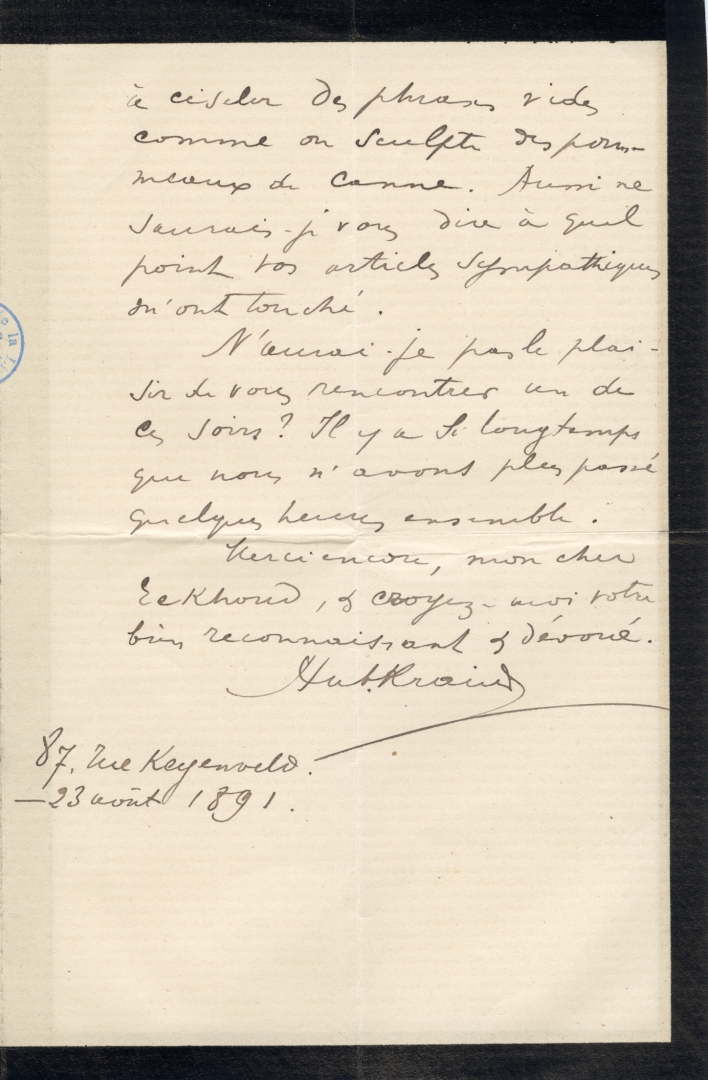 à ciseler des phrases vides
comme on sculpte des pom-
meaux de canne. Aussi ne
saurais-je vous dire à quel
point vos articles sympathiques
m'ont touché.
N'aurai-je pas le plai-
sir de vous rencontrer un de
ces soirs? Il y a si longtemps
que nous n'avons plus passé
quelques heures ensemble.
Merci encore, mon cher
Eekhoud, & croyez-moi votre
bien reconnaissant & dévoué.
Hub. Krains
87, rue Keyenveld.
—23 août 1891.
de la